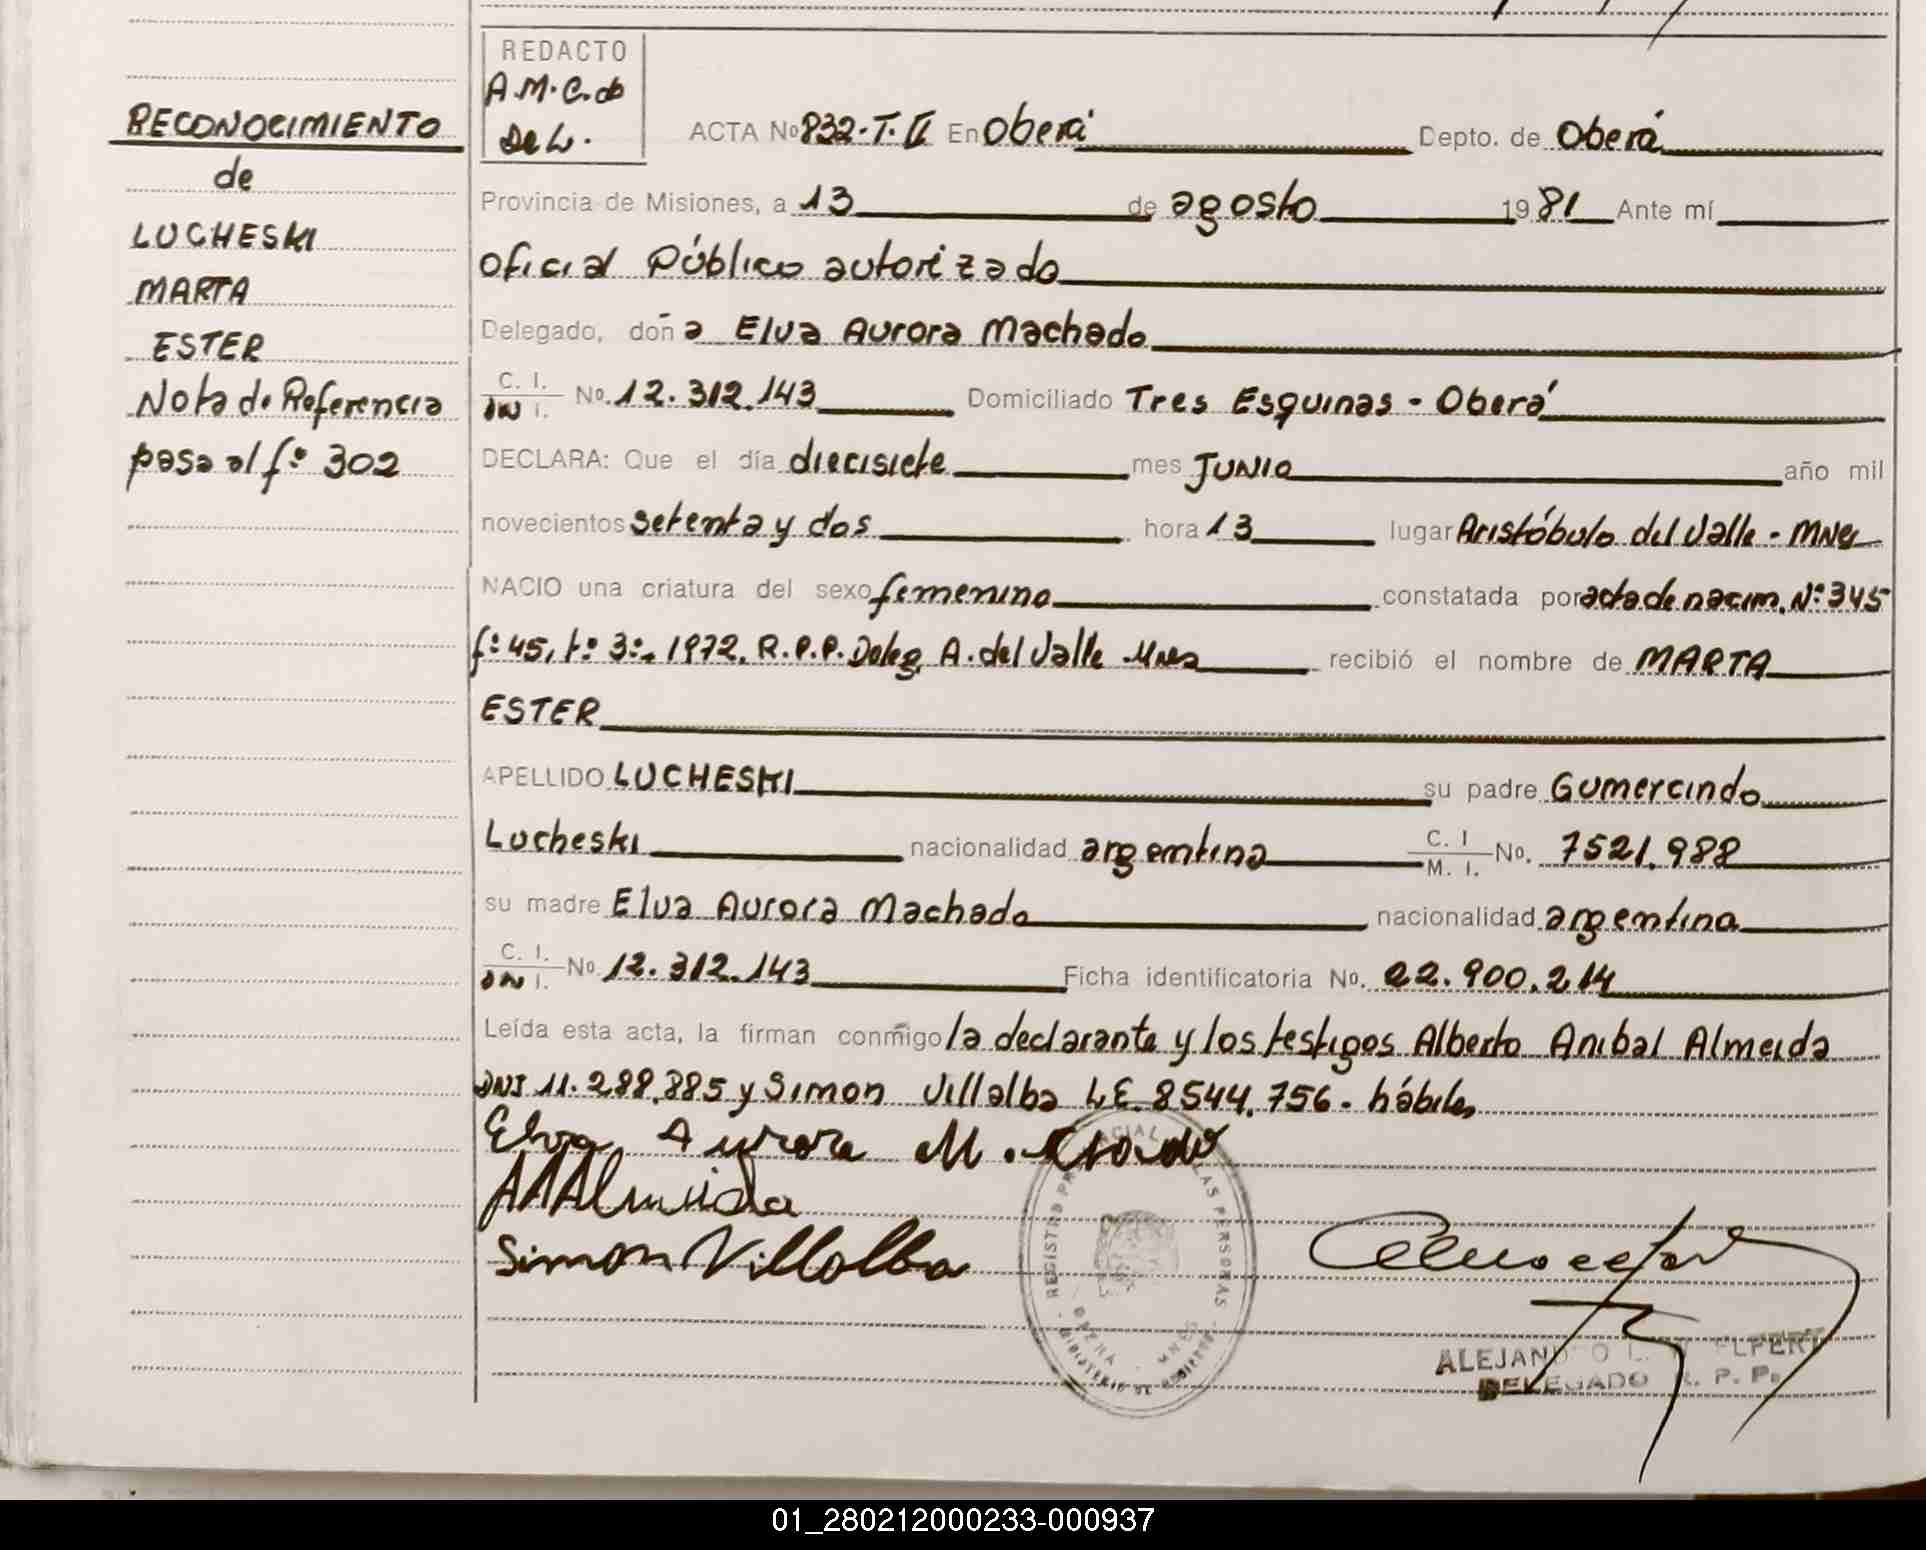 REDACTO
A.M.C. de
De L.
RECONOCIMIENTO
de
LUCHESKI
MARTA
ESTER
Nota de Referencia
pasa al fº 302
ACTA Nº 832-T. II En Oberá Depto. de Oberá
Provincia de Misiones, a 13 de agosto 1981 Ante mí
oficial Público autorizado
Delegado, doña Elva Aurora Machado
C. I. DN I. No. 12.312.143 Domiciliado Tres Esquinas - Oberá
DECLARA: Que el día diecisiete mes JUNIO año mil
novecientos setenta y dos hora 13 lugar Aristóbulo del Valle - Mnes
NACIO una criatura del sexo femenino constatada por acta de nacim. Nº 345
fº 45, tº 3º, 1972. R.P.P. Deleg. A. del Valle Mnes recibió el nombre de MARTA
ESTER
APELLIDO LUCHESKI su padre Gumercindo
Lucheski nacionalidad argentina C. I M. I. No. 7521.988
su madre Elva Aurora Machado nacionalidad argentina
C. I. DN I. No. 12.312.143 Ficha identificatoria No. 22.900.214
Leída esta acta, la firman conmigo la declarante y los testigos Alberto Anibal Almeida
DNI 11.288.885 y Simon Villalba L.E. 8544.756 - hábiles
Elva Aurora M.
AAAlmeida
Simon Villalba
REGISTRO PROVINCIAL DE LAS PERSONAS
OBERÁ - MNES
MINISTERIO DE GOBIERNO
ALEJANDRO L.
DELEGADO R. P. P.
01_280212000233-000937